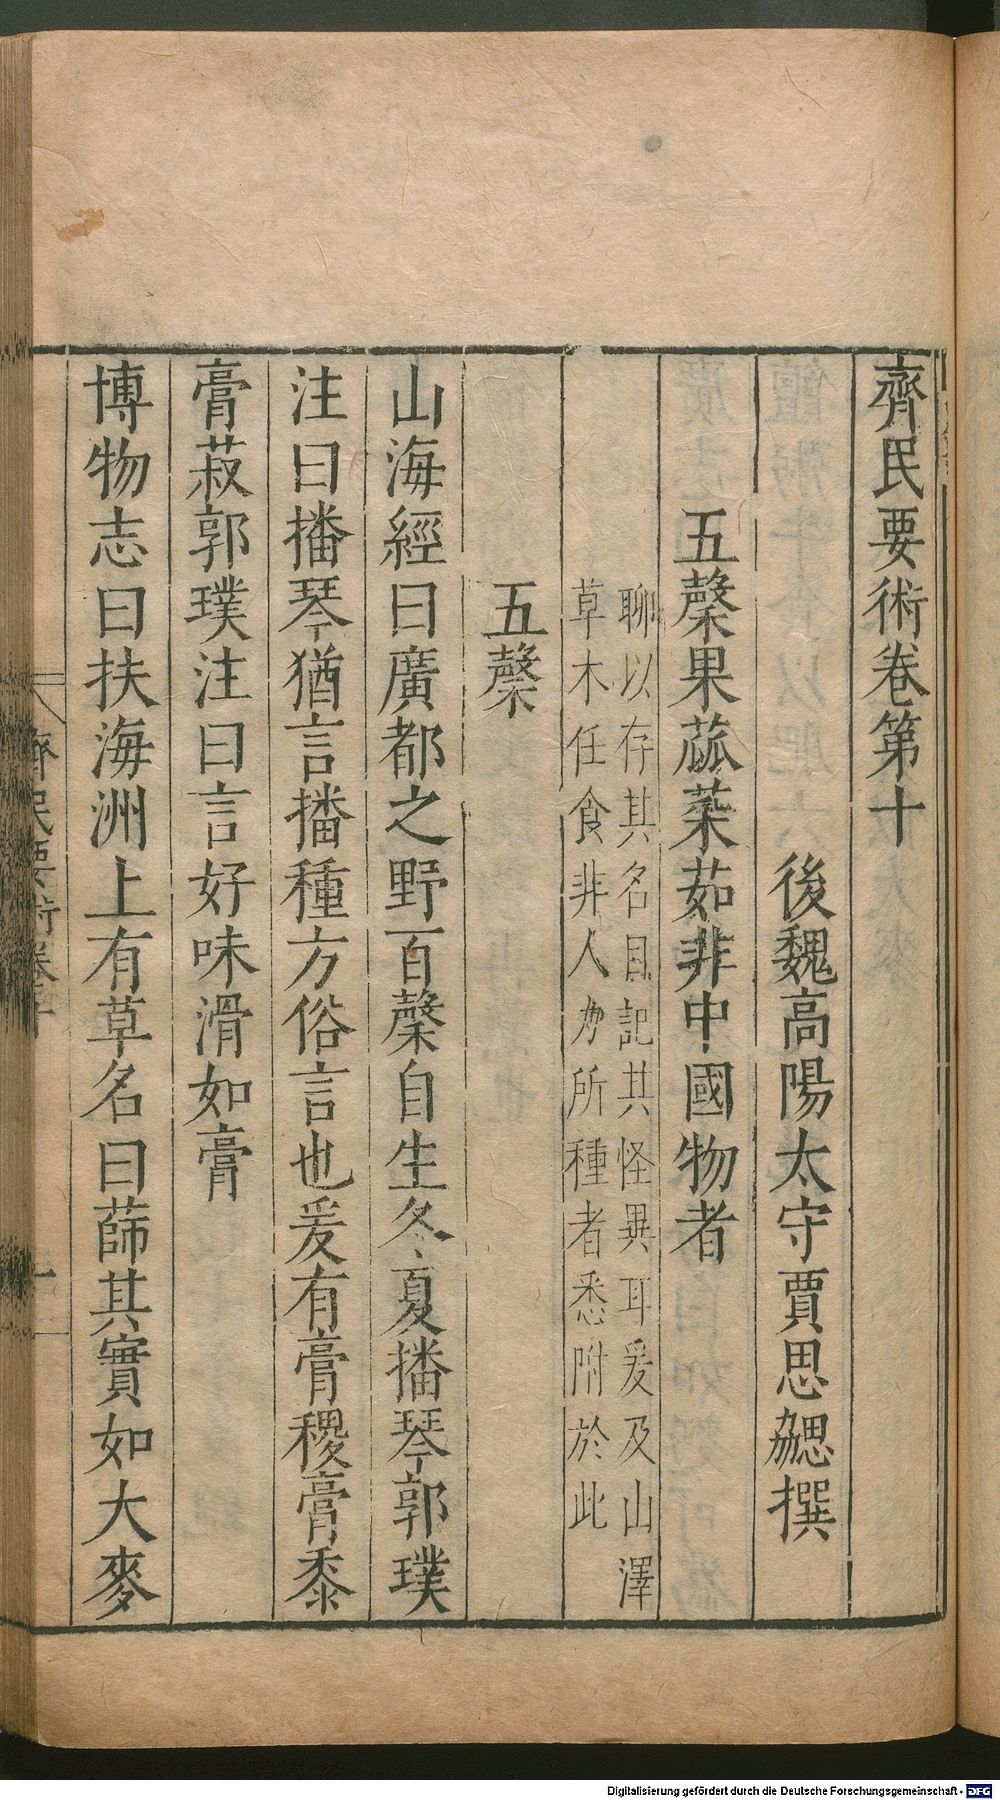 齊民要術卷第十
後魏高陽太守賈思勰撰
五檕果蓏菜茹非中國物者
聊以存其名目記其怪異耳爰及山澤
草木任食非人力所種者悉附於此
五檕
山海經曰廣都之野百檕自生冬夏播琴郭璞
注曰播琴猶言播種方俗言也爰有膏稷膏黍
膏菽郭璞注曰言好味滑如膏
博物志曰扶海洲上有草名曰蒒其實如大麥
齊民要術卷十
一
Digitalisierung gefördert durch die Deutsche Forschungsgemeinschaft - DFG